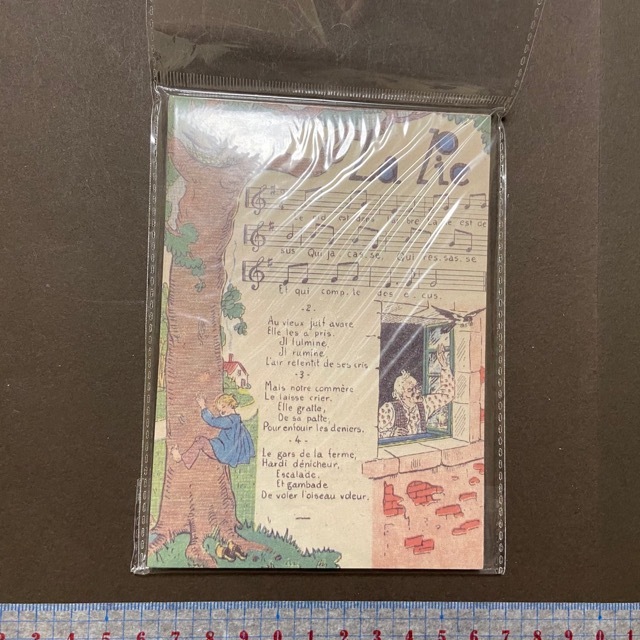 La Pie
sus Qui ja. cas. se, Qui res. sas. se
Et qui comp. te des e. cus.
- 2 -
Au vieux juif avare
Elle les a pris.
Il fulmine,
Il rumine
L'air retentit de ses cris
- 3 -
Mais notre commère
Le laisse crier.
Elle gratte,
De sa patte,
Pour enfouir les deniers.
- 4 -
Le gars de la ferme,
Hardi dénicheur,
Escalade,
Et gambade
De voler l'oiseau voleur.